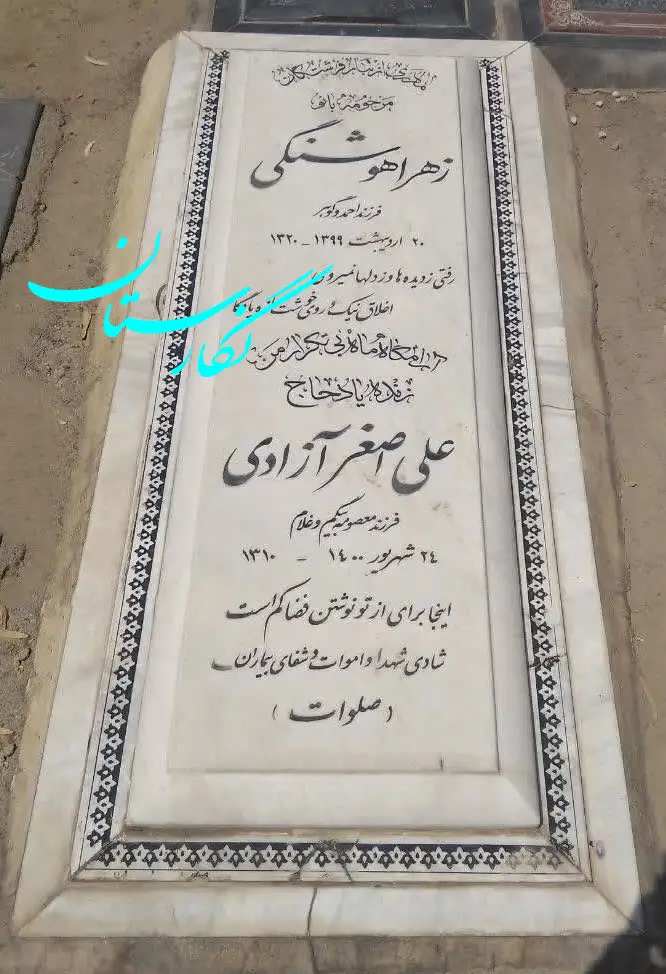 مرحومه بانو
زهرا هوشنگی
فرزند احمد و گوهر
۲۰ اردیبهشت ۱۳۹۹ - ۱۳۲۰
رفتی ز دیده ها و ز دلها نمیروی
اخلاق نیک و روی خوشت
آرامگاه ماه بی تکرار من
زنده یاد حاج
علی اصغر آزادی
فرزند معصومه بیگم و غلام
۲۴ شهریور ۱۴۰۰ - ۱۳۱۰
اینجا برای از تو نوشتن فضا کم است
شادی شهدا و اموات و شفای بیماران
(صلوات)
نگارستان